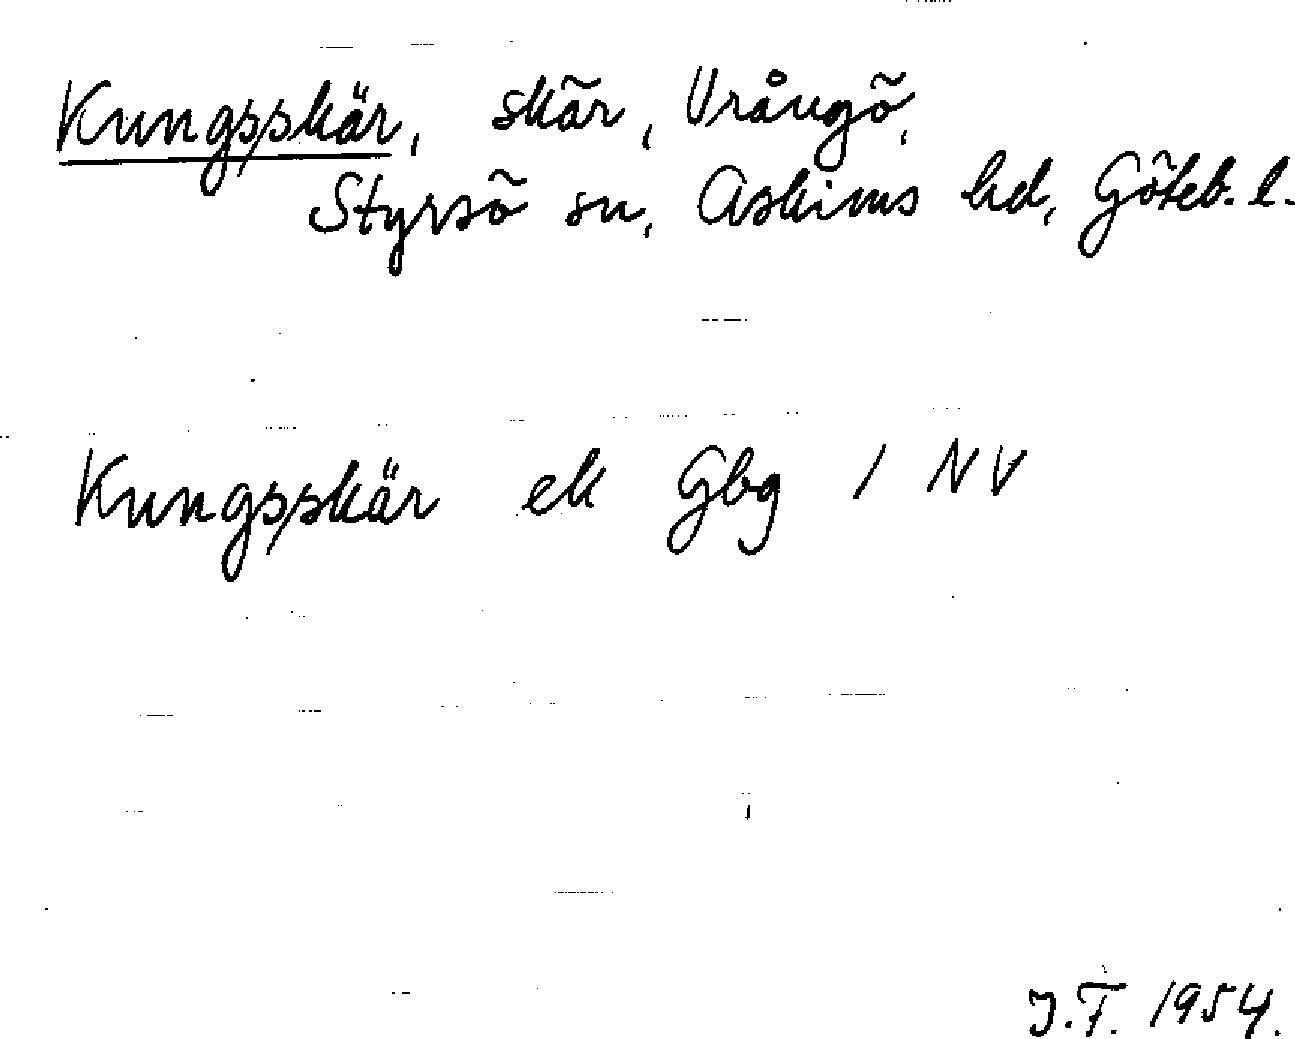 Kungsskär, skär, Vrångö,
Styrsö sn, Askims hd, Göteb. l.
Kungsskär ek Gbg 1 NV
J.F. 1954.